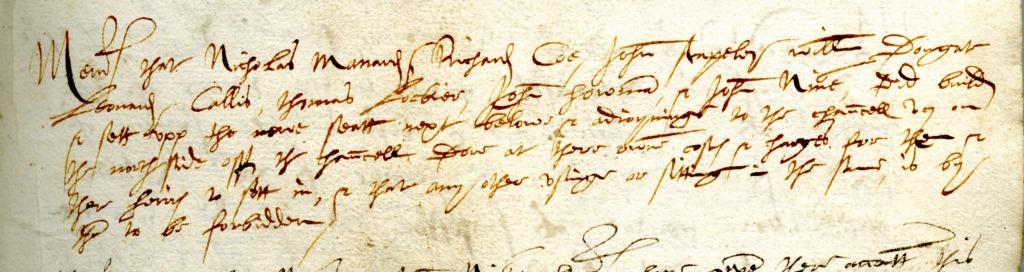 Memd that Nicholas Manard Richard Coe John Stapeley willm Dongat
Leonard Callis, thomas Lockier, John howman, & John Nine, Did build
& sett vpp the newe seatt next belowe & adioyninge to the chauncell by on
the north side off the chauncell Dore at there owne costs & charges for them &
ther heires to sett in, & that any other vsinge or sitting in the same, is by
them to be forbidden
this